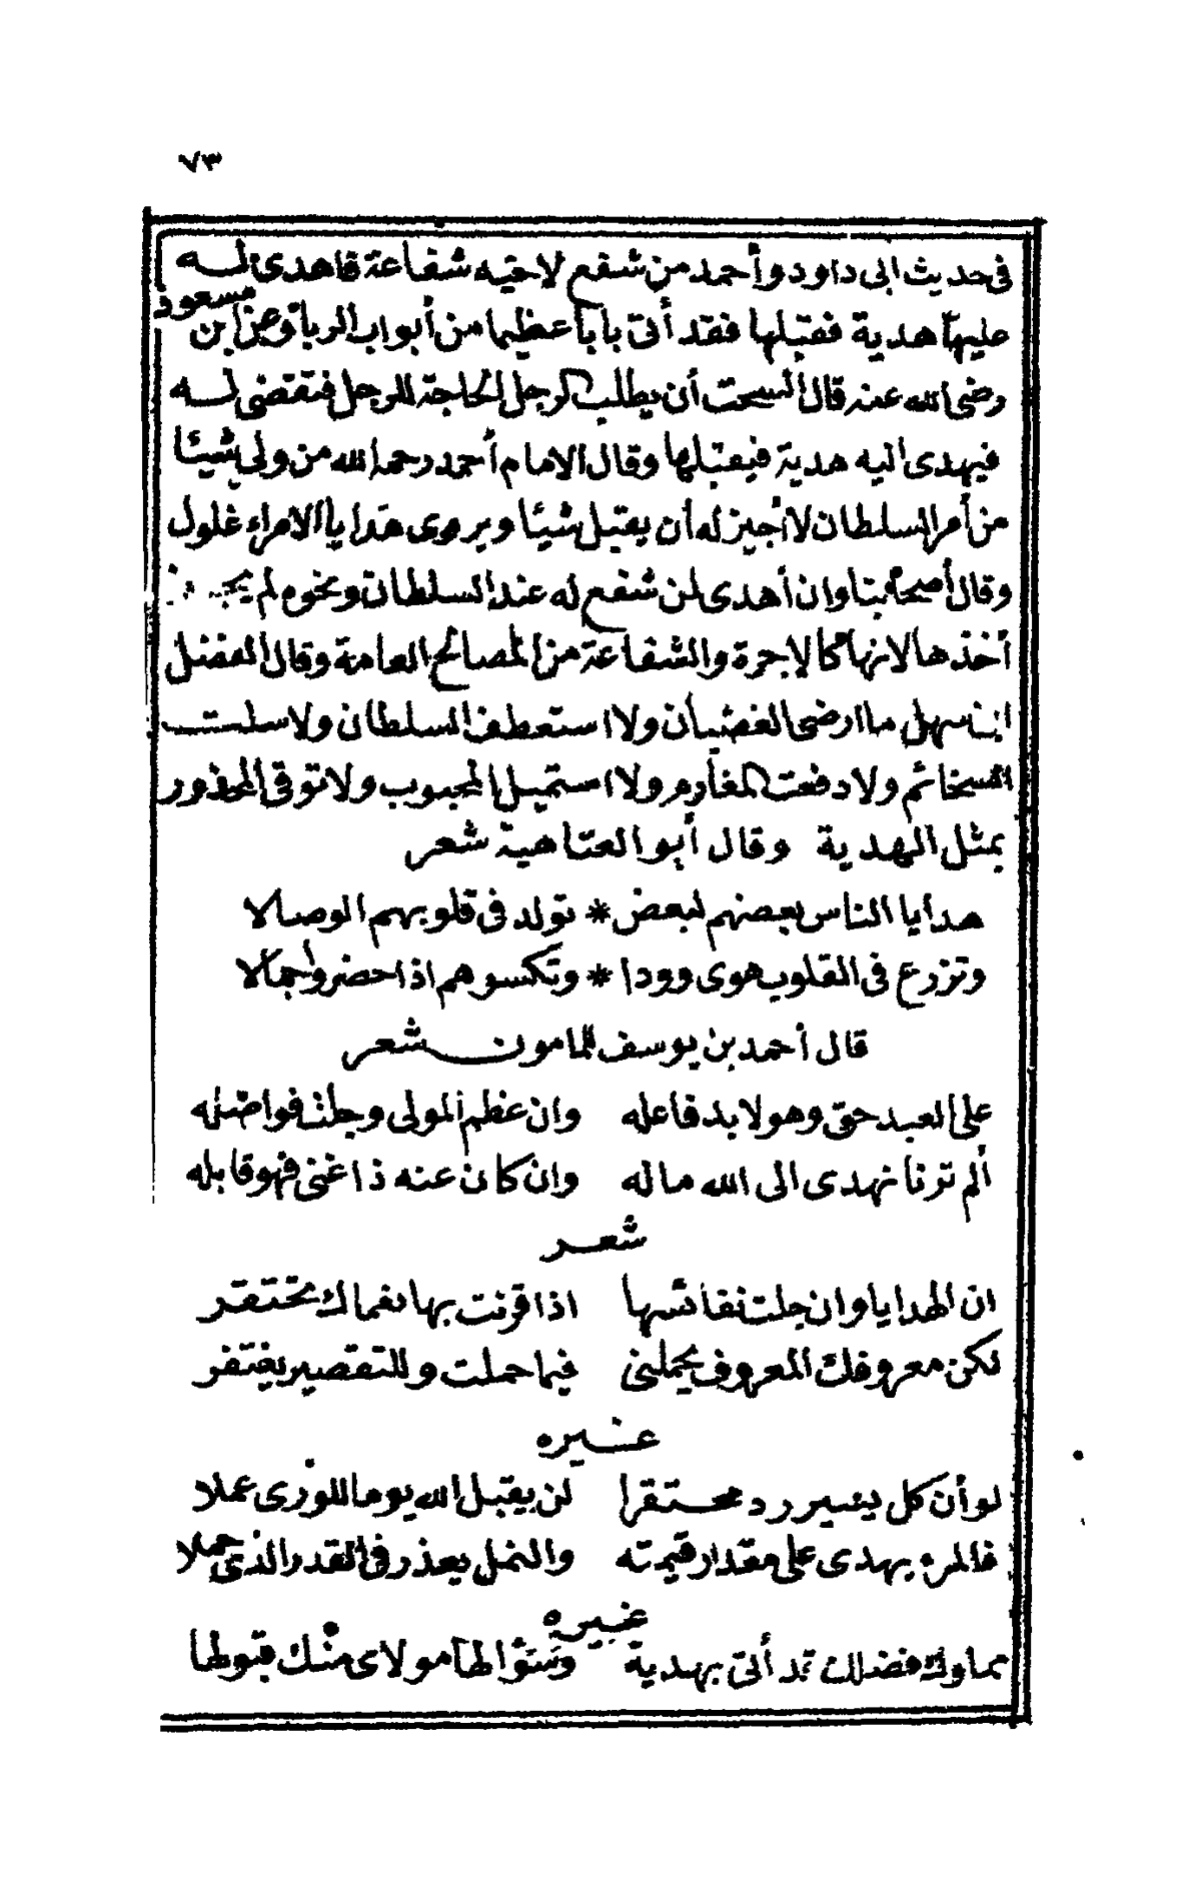 ٧٣
فى حديث ابى داود وأحمد من شفع لاخيه شفاعة فاهدى له
عليها هدية فقبلها فقد أتى بابا عظيما من أبواب الربا وعن ابن مسعود
رضى الله عنه قال السحت أن يطلب الرجل الحاجة للرجل فتقضى له
فيهدى اليه هدية فيقبلها وقال الامام أحمد رحمه الله من ولى شيئا
من أمر السلطان لا أجيز له أن يقبل شيئا ويروى هدايا الامراء غلول
وقال أصحابنا وان أهدى لمن شفع له عند السلطان ونحوه لم يجز
أخذها لانها كالاجرة والشفاعة من المصالح العامة وقال الفضل
ابن سهل ما ارضى الغضبان ولا استعطف السلطان ولا سلت
السخائم ولا دفعت المغارم ولا استميل المحبوب ولا توقى المحذور
بمثل الهدية وقال أبو العتاهية شعر
هدايا الناس بعضهم لبعض * تولد فى قلوبهم الوصالا
وتزرع فى القلوب هوى وودا * وتكسوهم اذا حضروا جمالا
قال أحمد بن يوسف للمامون شعر
على العبد حق وهو لا بد فاعله وان عظم المولى وجلت فواضله
ألم ترنا نهدى الى الله ماله وان كان عنه ذا غنى فهو قابله
شعر
ان الهدايا وان جلت نفائسها اذا قرنت بها نعماك تحتقر
لكن معروفك المعروف يحملنى فيما حملت وللتقصير يغتفر
غيره
لو أن كل يسير رد محتقرا لن يقبل الله يوما للورى عملا
فالمرء يهدى على مقدار قيمته والنمل يعذر فى القدر الذى حملا
غيره
فضلك قد أتى بهدية وسؤالها مولاى منك قبولها